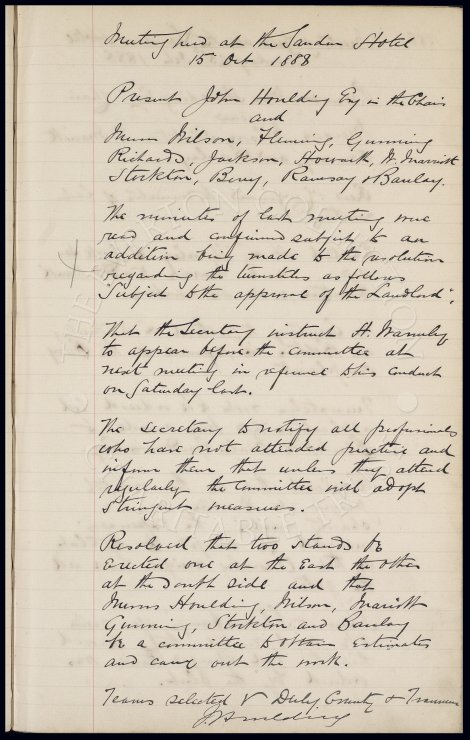 Meeting held at the Sandon Hotel
15 Oct 1888
Present John Houlding Esq in the Chair
and
Messrs Wilson, Fleming, Gunning
Richards, Jackson, Howarth, W. Marriott
Stockton, Berry, Ramsay & Barclay.
The minutes of last meeting were
read and confirmed subject to an
addition being made to the resolution
regarding the turnstiles as follows
"Subject to the approval of the Landlord".
That the Secretary instruct H. Warmby
to appear before the committee at
next meeting in reference to his conduct
on Saturday last.
The secretary to notify all professionals
who have not attended practice and
inform them that unless they attend
regularly the Committee will adopt
Stringent measures.
Resolved that two stands be
Erected one at the East the other
at the South side and that
Messrs Houlding, Wilson, Marriott
Gunning, Stockton and Barclay
be a committee to obtain Estimates
and carry out the work.
Teams selected V Derby County & Tranmere
J Houlding